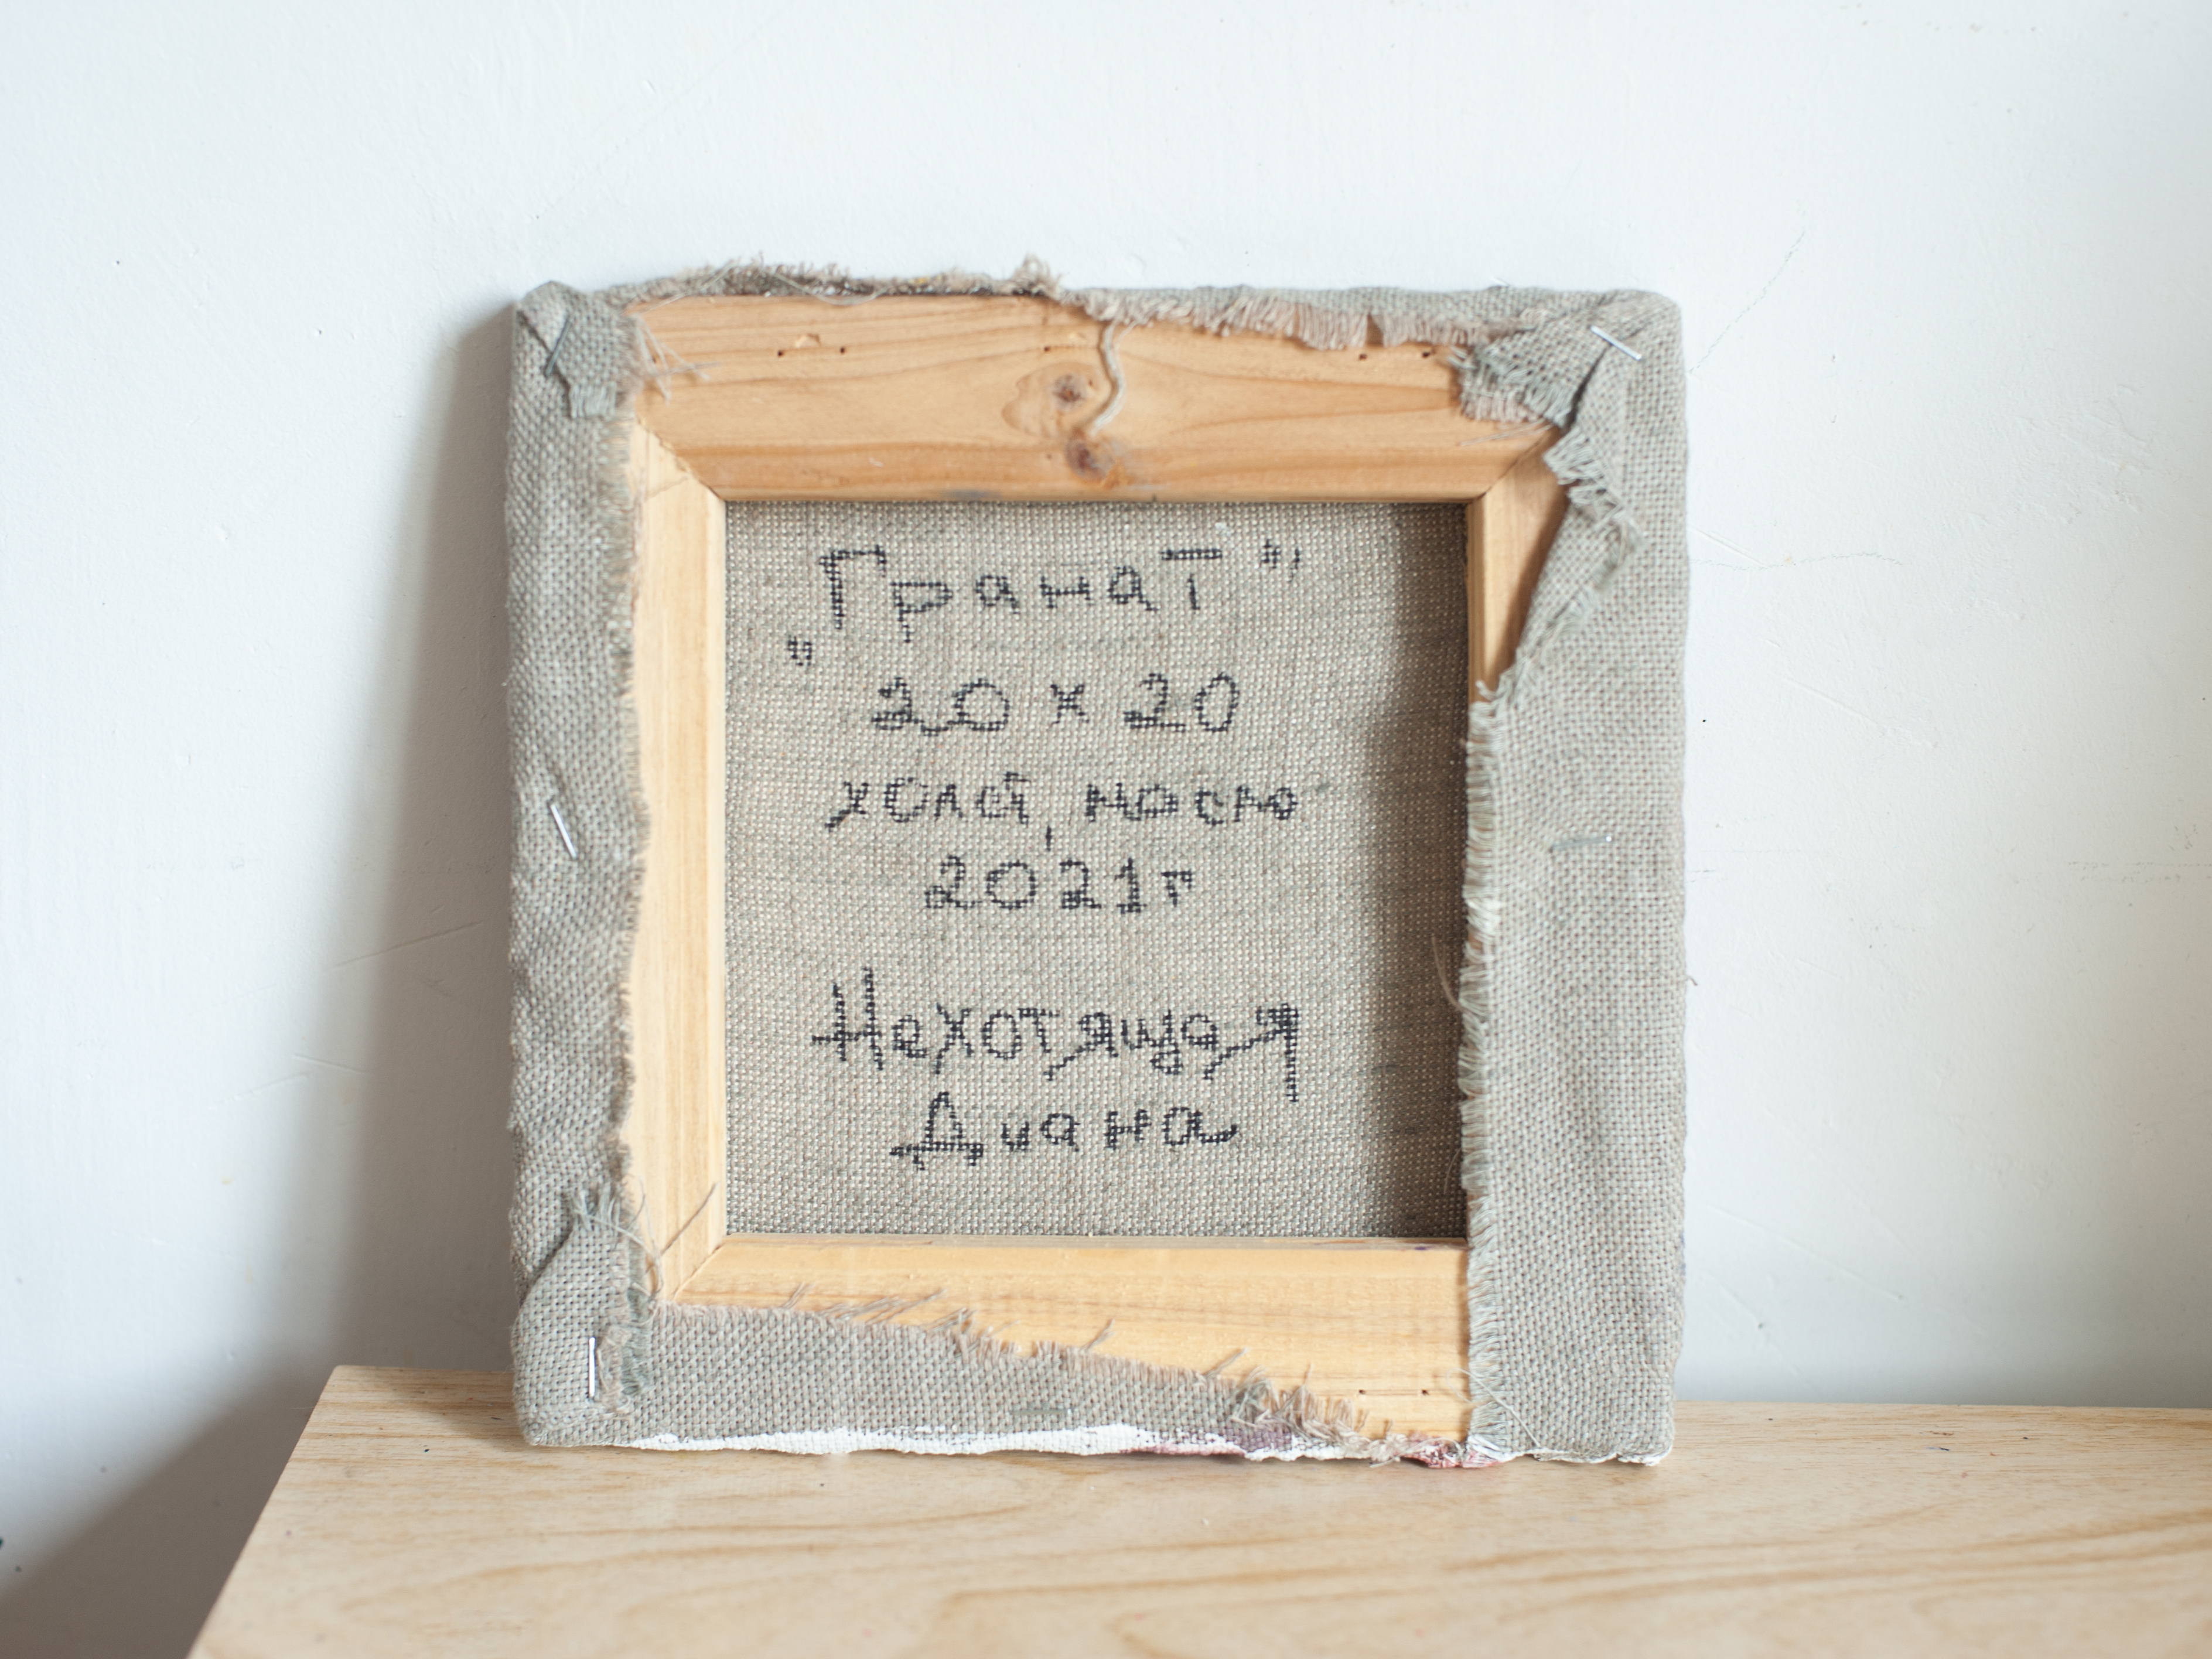 „Гранат"
20 x 20
холст, масло
2021г
Нехотящая
Диана